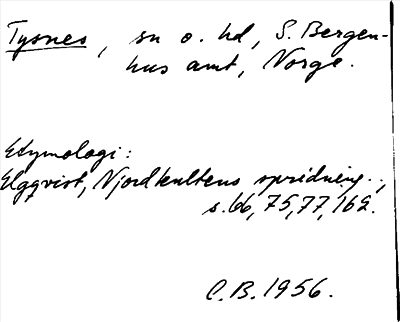 Tysnes, sn o. hd, S. Bergen-
hus amt, Norge.
Etymologi:
Elgqvist, Njordkultens spridning..,
s. 66, 75, 77, 162.
C.B. 1956.